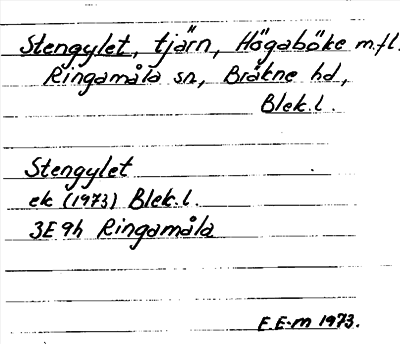 Stengylet, tjärn, Högaböke m.fl.
Ringamåla sn, Bräkne hd,
Blek.l.
Stengylet
ek (1973) Blek.l.
3E 9h Ringamåla
E.E-m 1973.